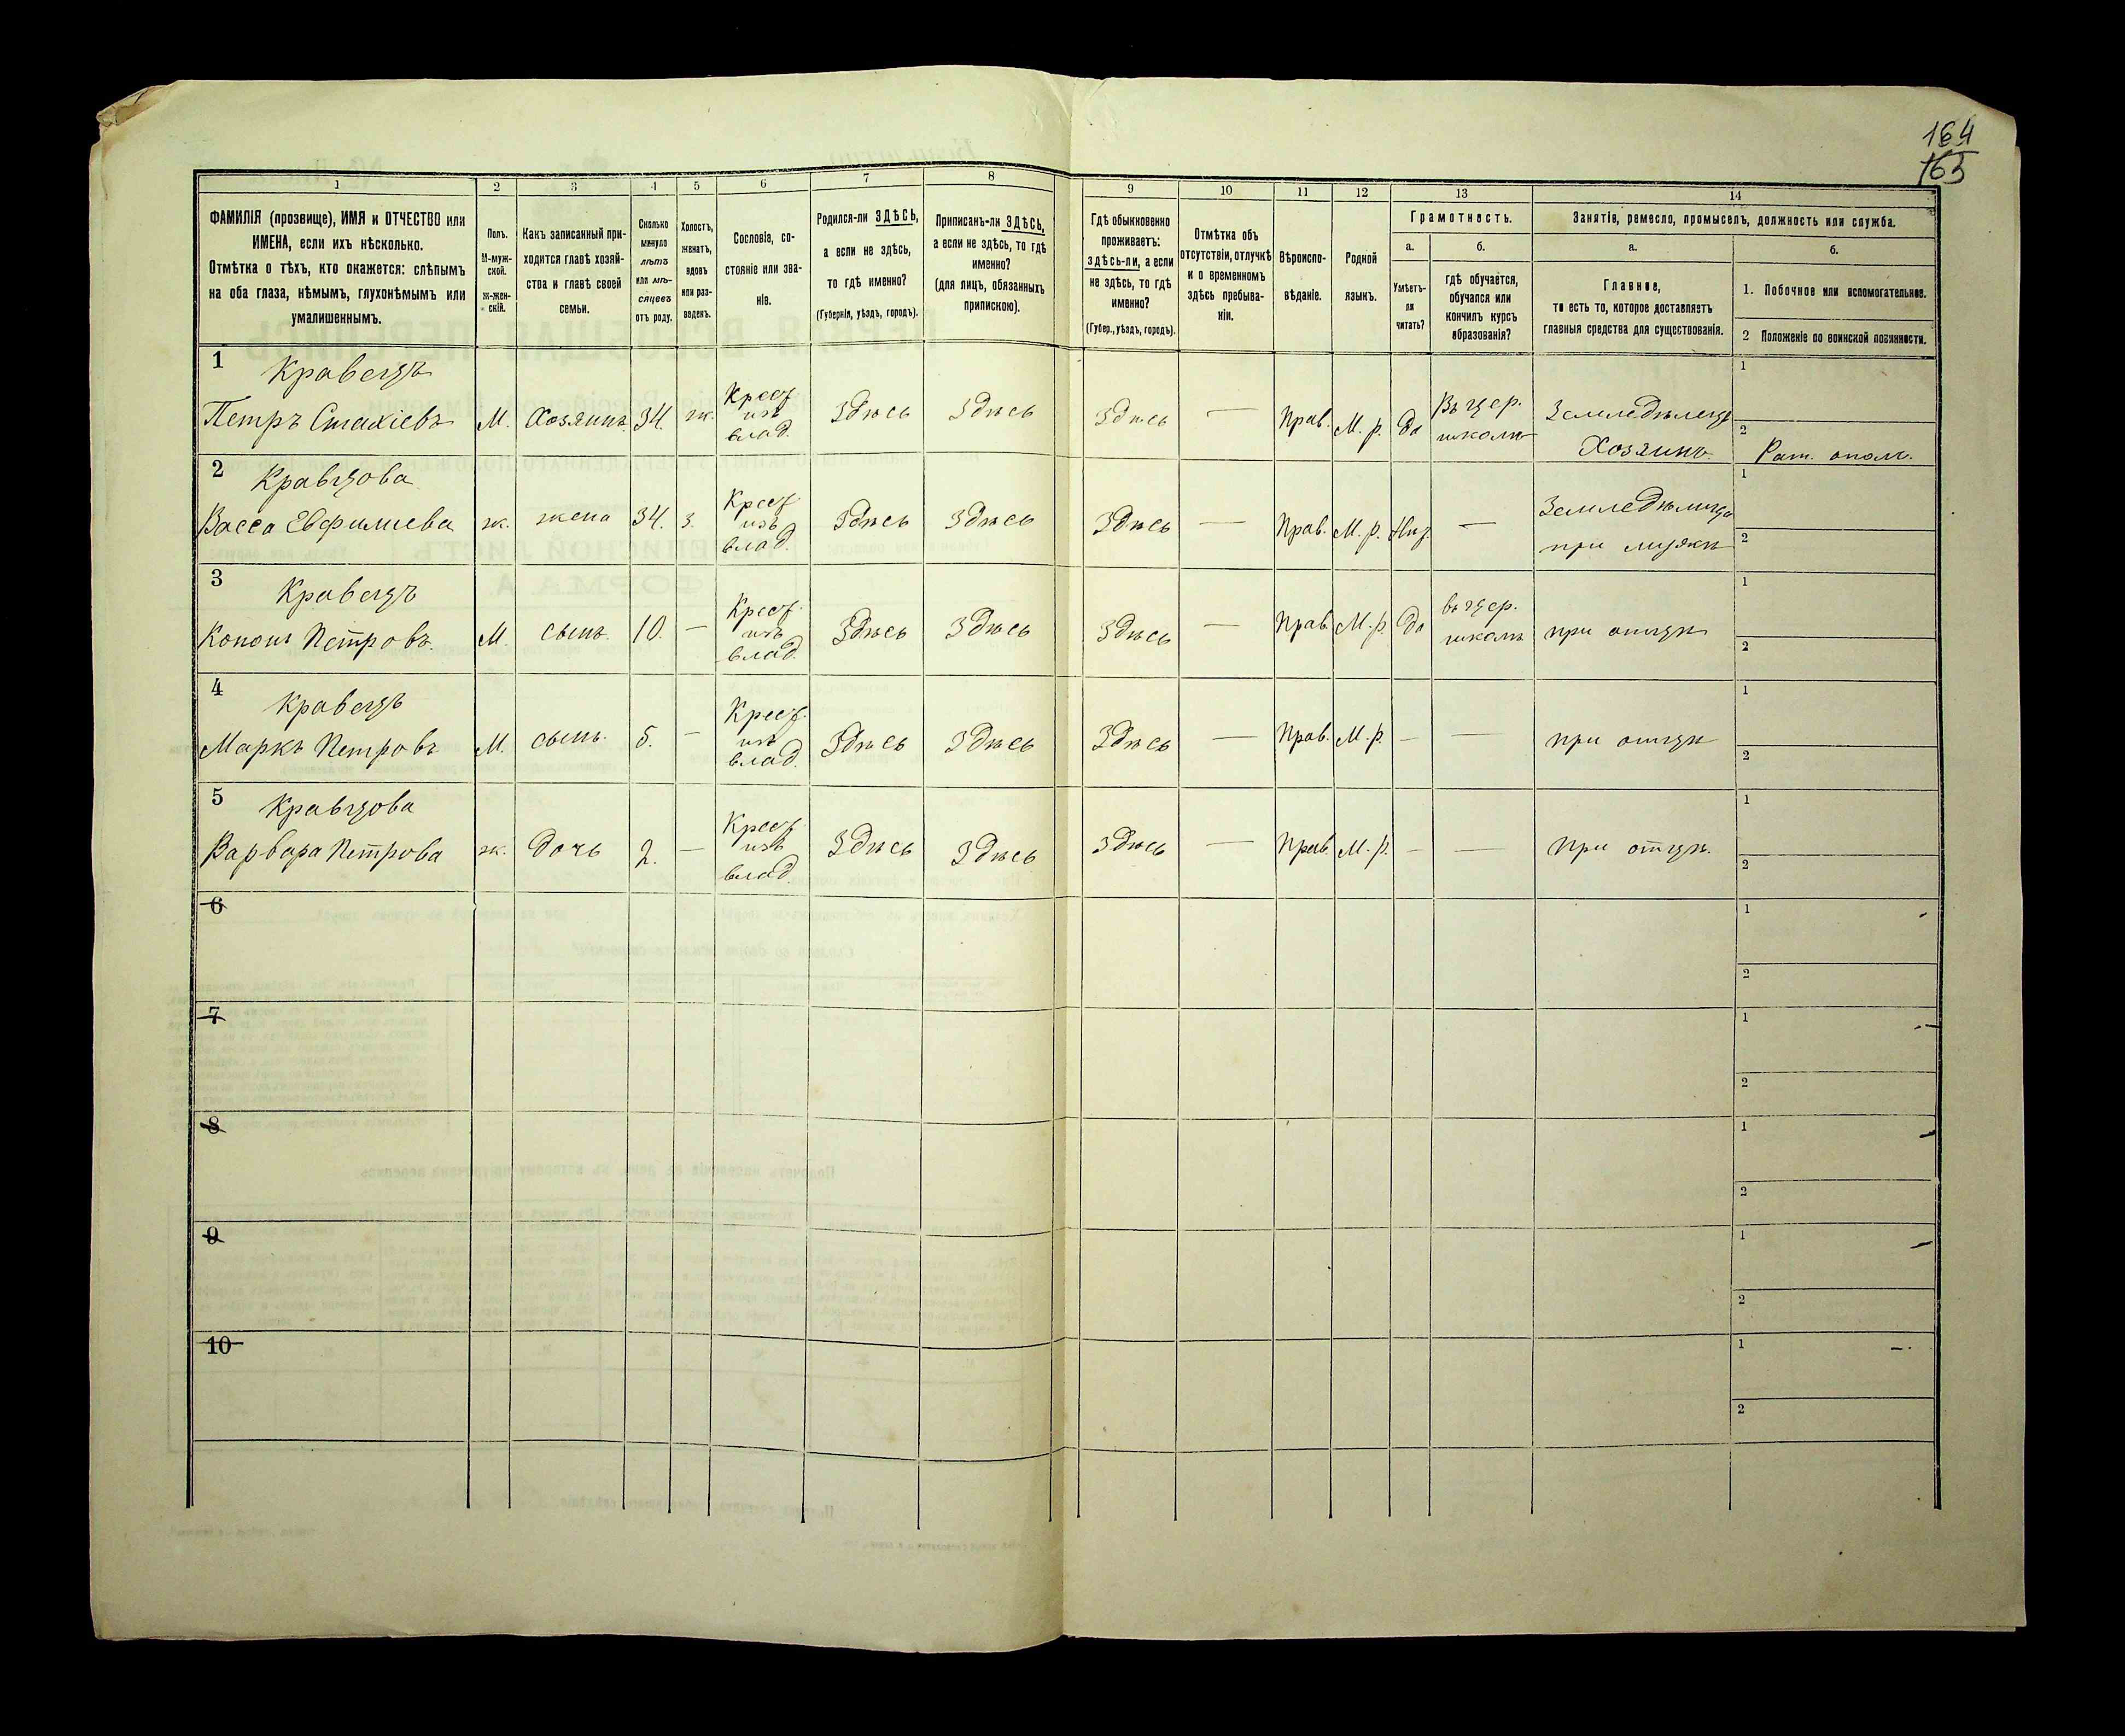 164
165
1
2
3
4
5
6
7
8
9
10
11
12
13
14
ФАМИЛІЯ (прозвище), ИМЯ и ОТЧЕСТВО или
ИМЕНА, если ихъ нѣсколько.
Отмѣтка о тѣхъ, кто окажется: слѣпымъ
на оба глаза, нѣмымъ, глухонѣмымъ или
умалишеннымъ.
Полъ.
М-муж-
ской.
ж-жен-
скій.
Какъ записанный при-
ходится главѣ хозяй-
ства и главѣ своей
семьи.
Сколько
минуло
лѣтъ
или мѣ-
сяцевъ
отъ роду.
Холостъ,
женатъ,
вдовъ
или раз-
веденъ.
Сословіе, со-
стояніе или зва-
ніе.
Родился-ли ЗДѢСЬ,
а если не здѣсь,
то гдѣ именно?
(Губернія, уѣздъ, городъ).
Приписанъ-ли ЗДѢСЬ,
а если не здѣсь, то гдѣ
именно?
(для лицъ, обязанныхъ
припискою).
Гдѣ обыкновенно
проживаетъ:
здѣсь-ли, а если
не здѣсь, то гдѣ
именно?
(Губер., уѣздъ, городъ).
Отмѣтка объ
отсутствіи, отлучкѣ
и о временномъ
здѣсь пребыва-
ніи.
Вѣроиспо-
вѣданіе.
Родной
языкъ.
Грамотность.
а.
Умѣетъ-
ли
читать?
б.
гдѣ обучается,
обучался или
кончилъ курсъ
образованія?
Занятіе, ремесло, промыселъ, должность или служба.
а.
Главное,
то есть то, которое доставляетъ
главныя средства для существованія.
б.
1. Побочное или вспомогательное.
2 Положеніе по воинской повинности.
1 Кравецъ
Петръ Стахіевъ М. Хозяинъ 34. ж. Крест. изъ влад. Здѣсь Здѣсь Здѣсь — Прав. М. р. да Въ цер. школѣ Земледѣлецъ Хозяинъ 1
2 Рат. опол.
2 Кравцова
Васса Евфимиева ж. жена 34. з. Крест. изъ влад. Здѣсь Здѣсь Здѣсь — Прав. М. р. Нѣт — Земледѣлица при мужѣ 1
2
3 Кравецъ
Кононъ Петровъ. М. сынъ. 10. — Крест. изъ влад. Здѣсь Здѣсь Здѣсь — Прав. М. р. да въ цер. школѣ при отцѣ 1
2
4 Кравецъ
Маркъ Петровъ М. сынъ. 5. — Крест. изъ влад. Здѣсь Здѣсь Здѣсь — Прав. М. р. — — при отцѣ 1
2
5 Кравцова
Варвара Петрова ж. дочь 2. — Крест. изъ влад. Здѣсь Здѣсь Здѣсь — Прав. М. р. — — при отцѣ. 1
2
6 1
2
7 1
2
8 1
2
9 1
2
10 1
2